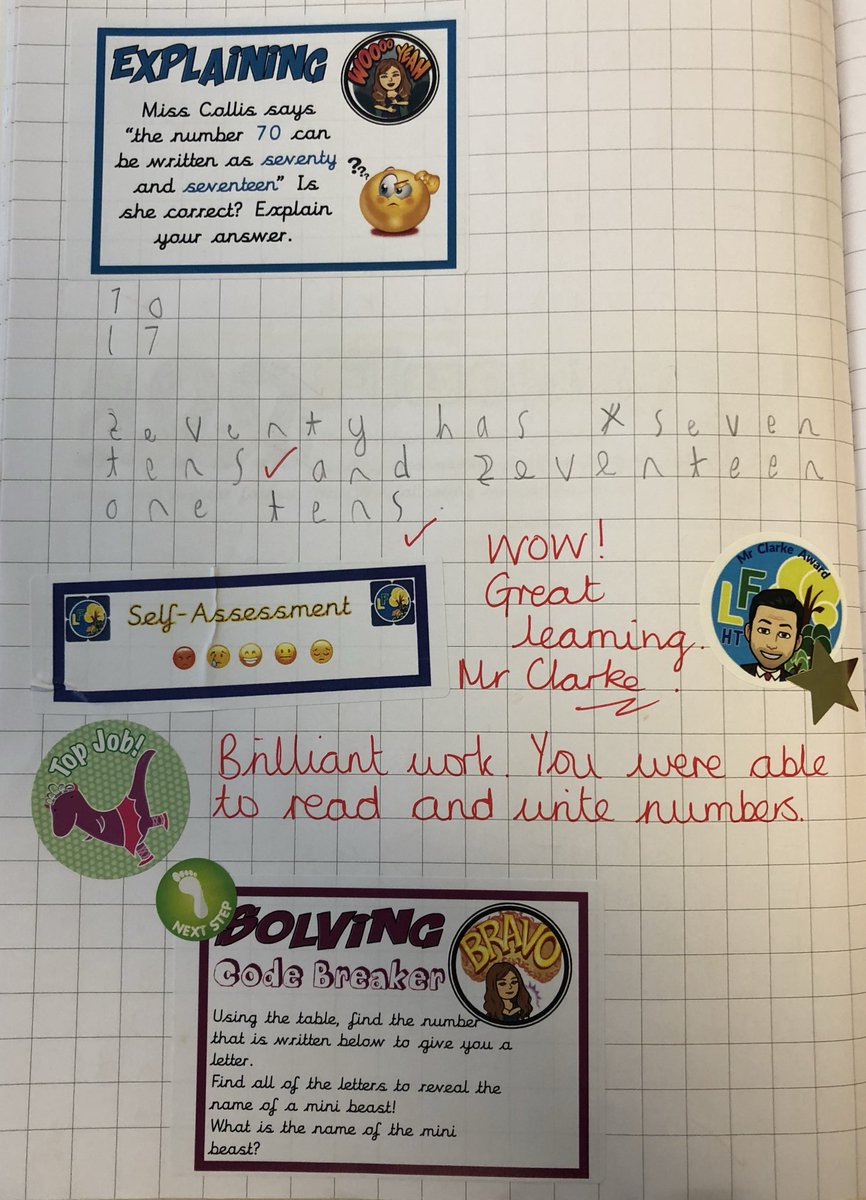 EXPLAINING
WOOOO YEAH
Miss Collis says
"the number 70 can
be written as seventy
and seventeen" Is
she correct? Explain
your answer.
???
70
17
zeventy has x seven
tens ✓ and zeventeen
one tens.
✓
WOW!
Great
learning.
Mr Clarke.
Mr Clarke Award
LF
HT
LF
Self-Assessment
LF
Top Job!
Brilliant work. You were able
to read and write numbers.
NEXT STEP
SOLVING
BRAVO
Code Breaker
Using the table, find the number
that is written below to give you a
letter.
Find all of the letters to reveal the
name of a mini beast!
What is the name of the mini
beast?